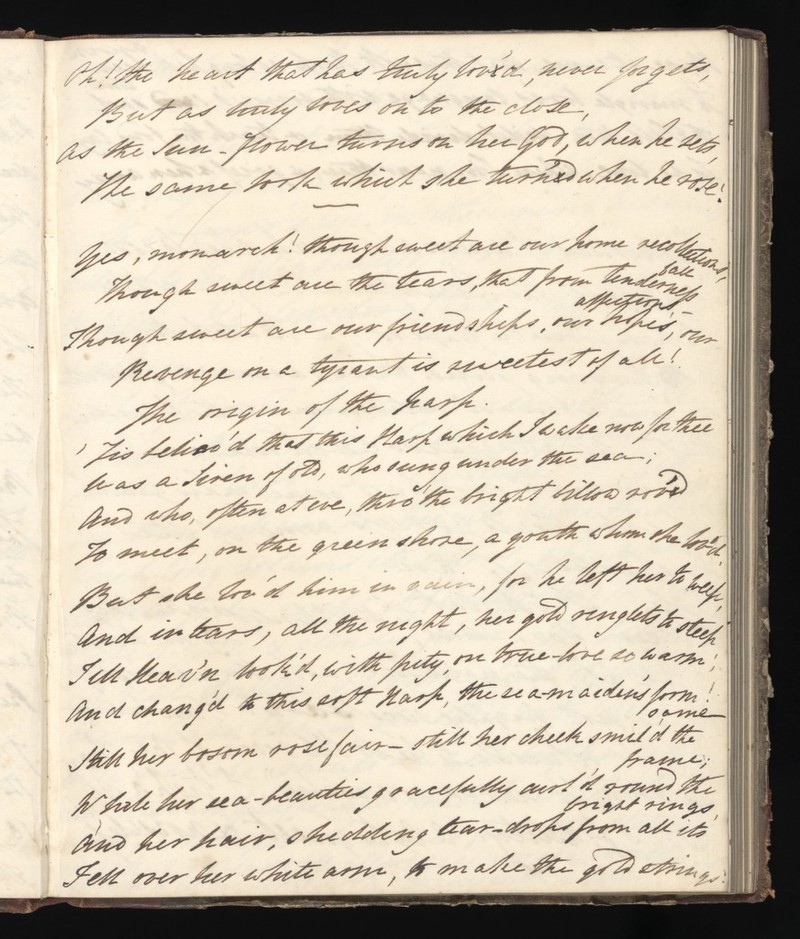 Oh! the heart that has truly lov'd, never forgets,
But as truly loves on to the close,
As the Sun-flower turns on her God, when he sets,
The same look which she turn'd when he rose!
Yes, monarch! though sweet are our home recollections,
Though sweet are the tears, that from tenderness fall
Though sweet are our friendships, our hopes, our affections,
Revenge on a tyrant is sweetest of all!
The origin of the harp.
'Tis believ'd that this Harp which I wake now for thee
Was a Siren of old, who sung under the sea;
And who, often at eve, thro' the bright billow rov'd
To meet, on the green shore, a youth whom she lov'd.
But she lov'd him in vain, for he left her to weep,
And in tears, all the night, her gold ringlets to steep
Till Heav'n look'd, with pity, on true-love so warm,
And chang'd to this soft Harp, the sea-maiden's form!
Still her bosom rose fair – still her cheek smil'd the same
While her sea-beauties gracefully curl'd round the frame;
And her hair, shedding tear-drops from all its bright rings,
Fell over her white arm, to make the gold strings!